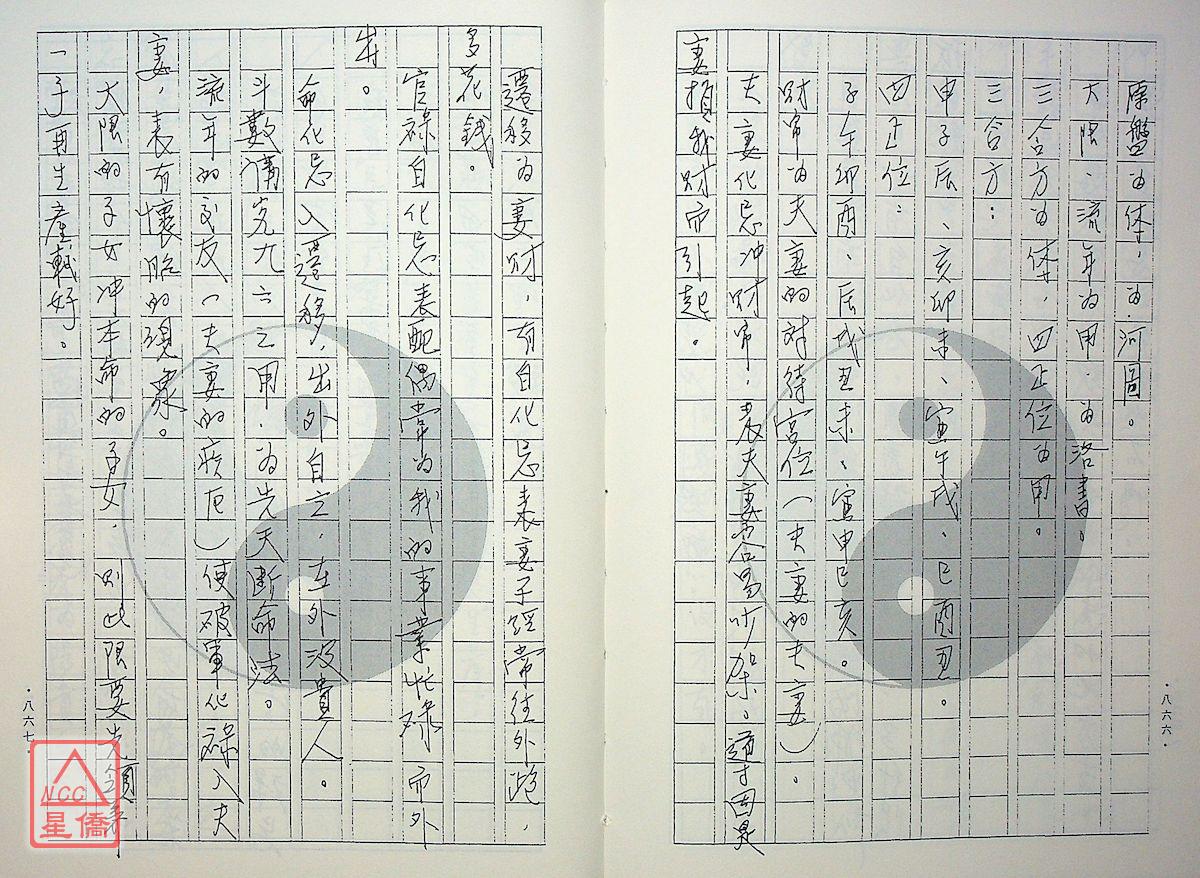 原盤為体，為河圖。
大限、流年為用．為洛書。
三合方為体，四正位為用。
三合方：
申子辰、亥卯未、寅午戌、巳酉丑。
四正位：
子午卯酉、辰戌丑未、寅申巳亥。
財帛為夫妻的对待宮位（夫妻的夫妻）．
夫妻化忌冲財帛，表夫妻容易吵架．因是
妻損我財而引起．
·八六六·
遷移為妻財，有自化忌表妻子經常往外跑，
多花錢。
官祿自化忌表配偶常為我的事業忙碌而外
出。
命化忌入遷移，出外自立，在外没貴人。
斗數讲究九六之用．為先天断命法。
流年的交友（夫妻的疾厄）使破軍化祿入夫
妻，表有懷胎的現象。
大限的子女冲本命的子女，則此限要先領養
一子再生產較好。
·八六七·
NCC
星僑